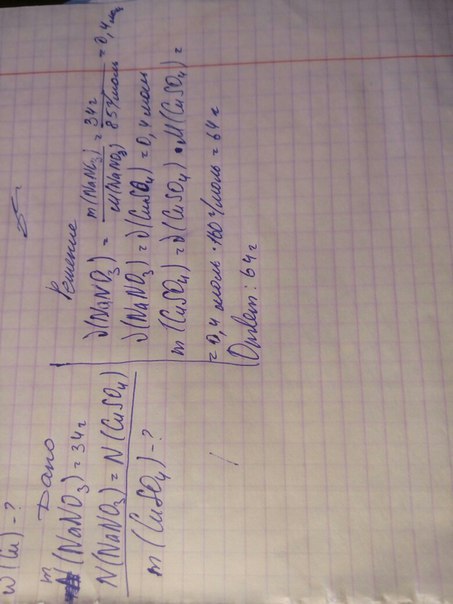 ω(Cu) - ?
Дано
m(NaNO₃) = 34г
N(NaNO₃) = N(CuSO₄)
m(CuSO₄) - ?
Решение
ν(NaNO₃) = m(NaNO₃) / M(NaNO₃) = 34г / 85г/моль = 0,4моль
ν(NaNO₃) = ν(CuSO₄) = 0,4 моль
m(CuSO₄) = ν(CuSO₄) • M(CuSO₄) =
= 0,4 моль · 160 г/моль = 64 г
Ответ: 64г